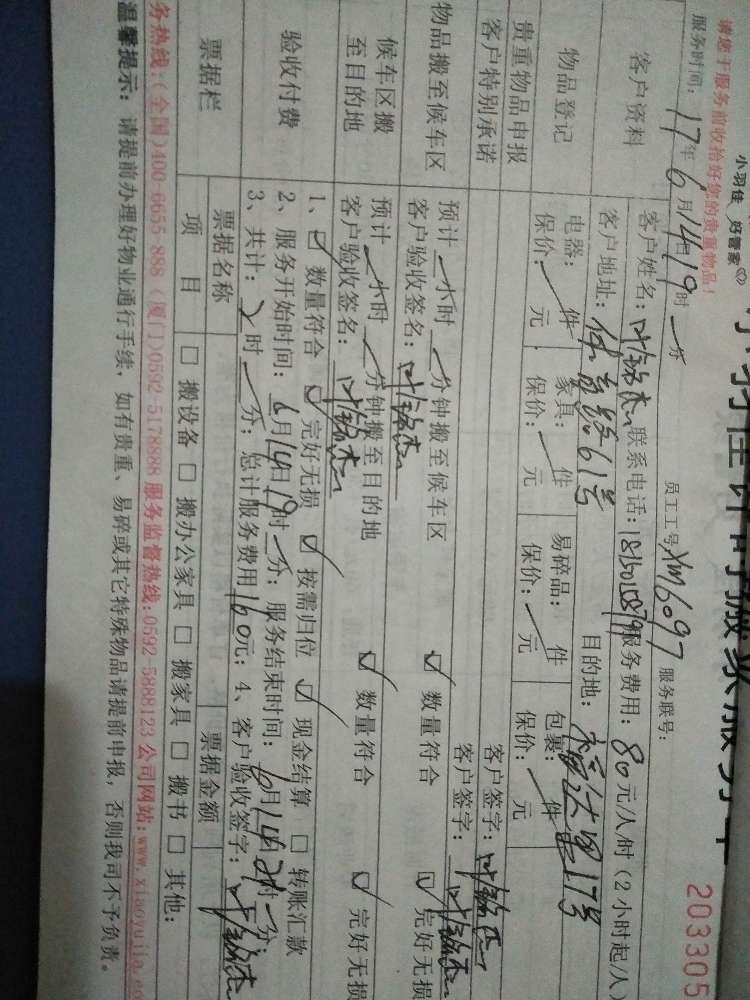 小羽佳 好管家
请您于服务前收拾好您的贵重物品!
203305
员工工号XM6097 服务联号:
服务时间: 17年6月14日19时 分
客户资料
客户姓名: 联系电话: 服务费用: 80元/人/时(2小时起/人
客户地址: 体育路61号 目的地: 17号
物品登记
电器: 件 家具: 件 易碎品: 件 包裹: 件
保价: 元 保价: 元 保价: 元 保价: 元
贵重物品申报 客户签字:
客户特别承诺 客户签字:
物品搬至候车区
预计 小时 分钟搬至候车区 ☑ 数量符合 ☑ 完好无损
客户验收签名:
候车区搬至目的地
预计 小时 分钟搬至目的地 ☑ 数量符合 ☑ 完好无损
客户验收签名:
验收付费
1、☑ 数量符合 ☑ 完好无损 ☑ 按需归位 ☑ 现金结算 □ 转账汇款
2、服务开始时间: 6月14日19时 分; 服务结束时间: 6月14日21时 分
3、共计: 2时 分; 总计服务费用160元; 4、客户验收签字:
票据栏
票据名称 票据金额
项 目 □ 搬设备 □ 搬办公家具 □ 搬家具 □ 搬书 □ 其他:
务热线:(全国)400-6655-888 (厦门)0592-5178888 服务监督热线:0592-5888123 公司网站:www.xiaoyujia.co
温馨提示: 请提前办理好物业通行手续, 如有贵重、易碎或其它特殊物品请提前申报, 否则我司不予负责。